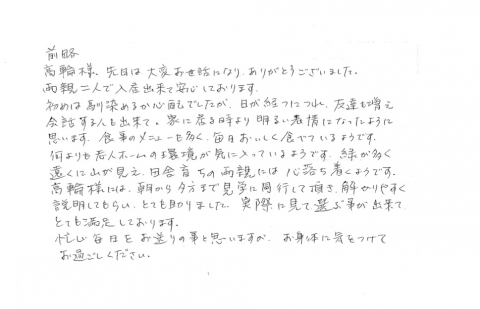 前略
高輪様、先日は大変お世話になり、ありがとうございました。
両親二人で入居出来て安心しております。
初めは馴染めるか心配でしたが、日が経つにつれ、友達も増え
会話する人も出来て。家に居る時より明るい表情になったように
思います。食事のメニューも多く、毎日おいしく食べているようです。
何よりも老人ホームの環境が気に入っているようです。緑が多く
遠くに山が見え、田舎育ちの両親には心落ち着くようです。
高輪様には、朝から夕方まで見学に同行して頂き、解かりやすく
説明してもらい、とても助りました。実際に見て選ぶ事が出来て
とても満足しております。
忙しい毎日をお送りの事と思いますが、お身体に気をつけて
お過ごしください。